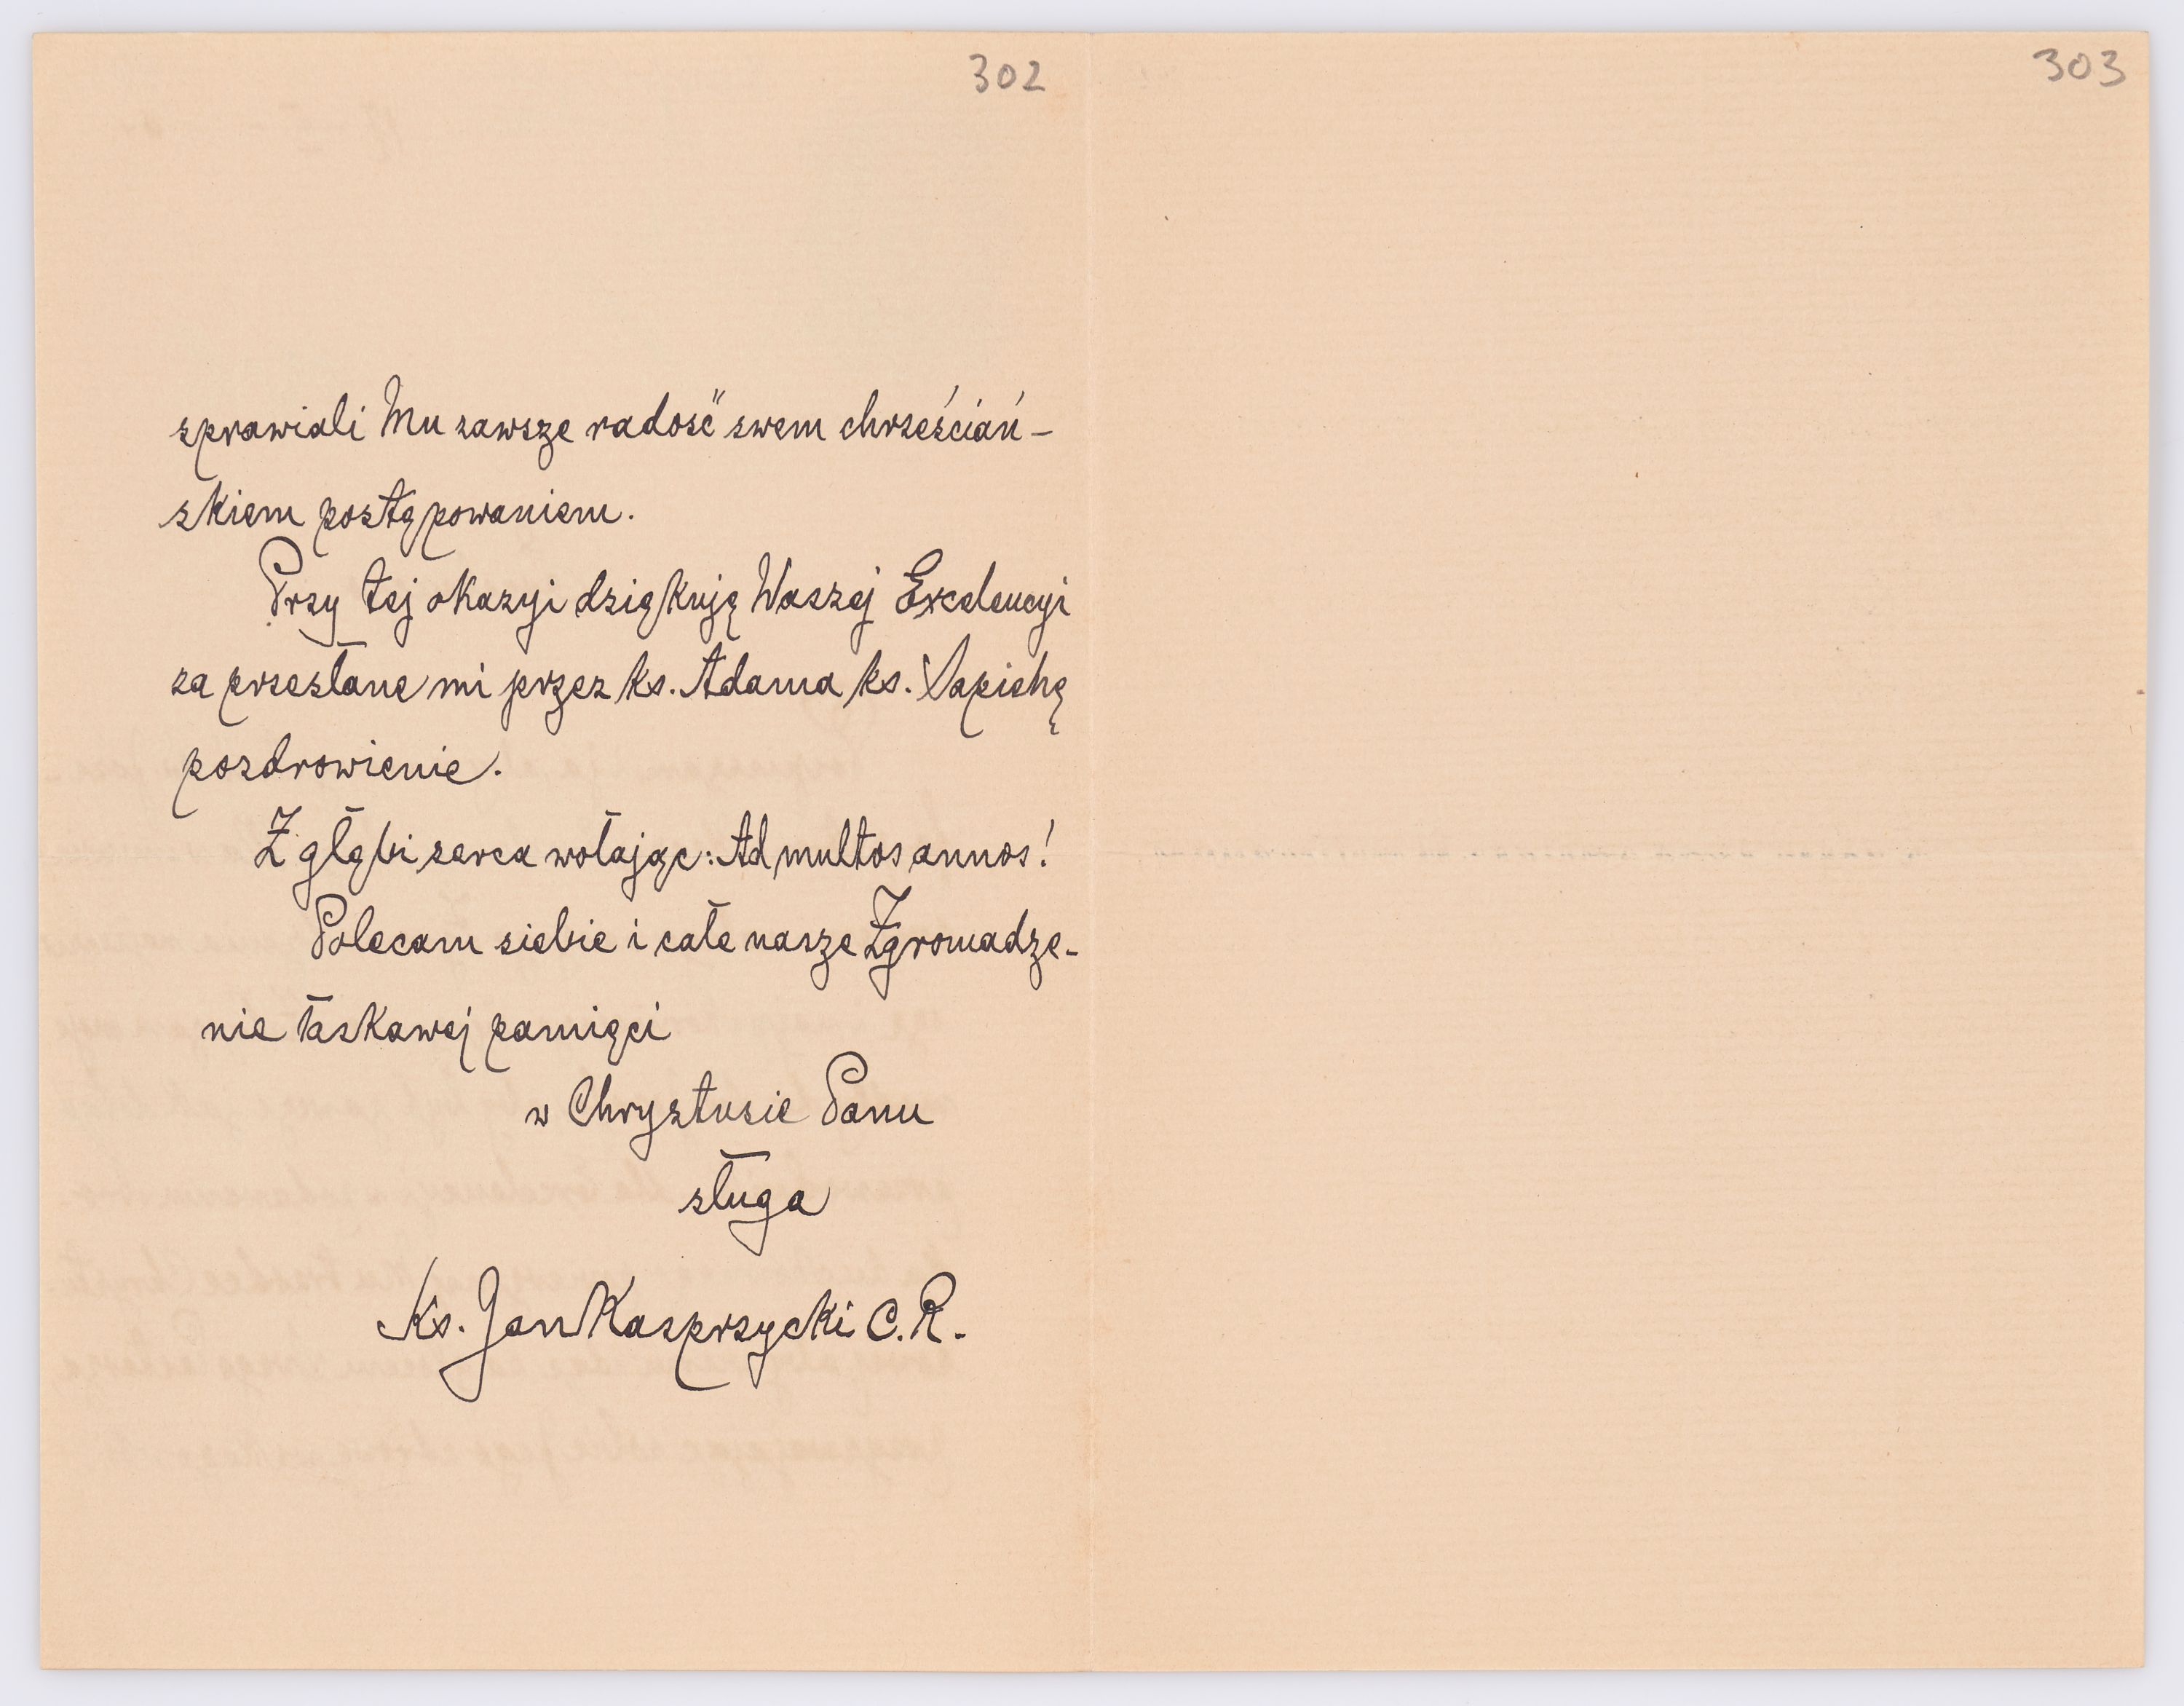 302
sprawiali Mu zawsze radość swem chrześciań-
skiem postępowaniem.
Przy tej okazyi dziękuję Waszej Excelencyi
za przesłane mi przez ks. Adama ks. Sapiehę
pozdrowienie.
Z głębi serca wołając: Ad multos annos!
Polecam siebie i całe nasze Zgromadze-
nie łaskawej pamięci
w Chrystusie Panu
sługa
Ks. Jan Kasprzycki C. R.
303